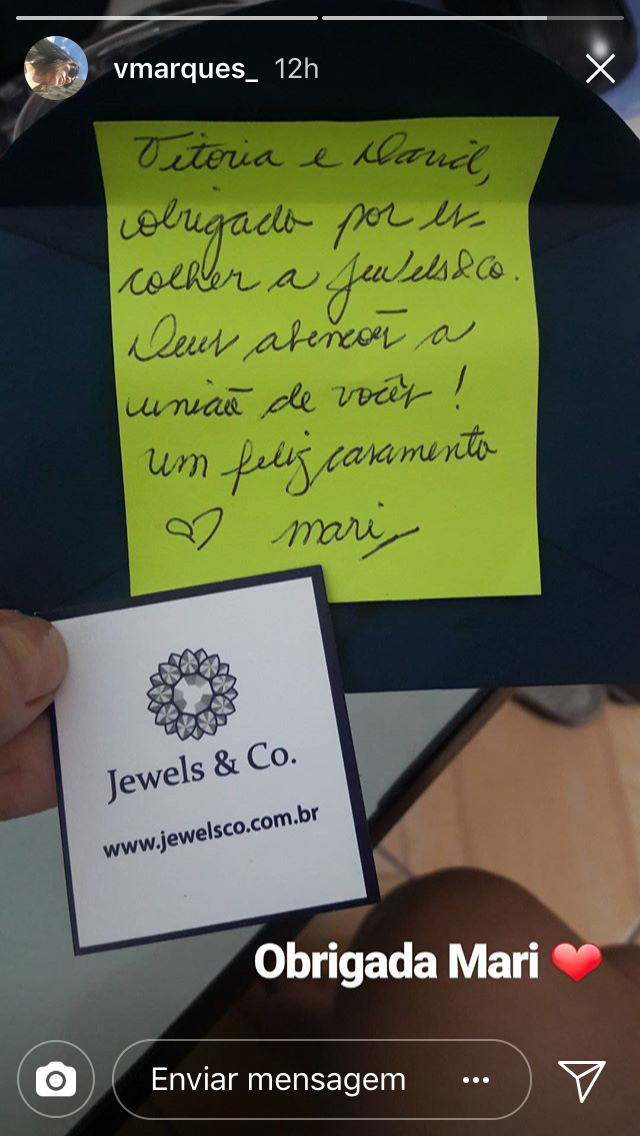 vmarques_ 12h
Vitoria e David,
obrigado por es-
colher a Jewels&Co.
Deus abençõe a
união de vocês!
um feliz casamento
♡ mari
Jewels & Co.
www.jewelsco.com.br
Obrigada Mari ❤
Enviar mensagem